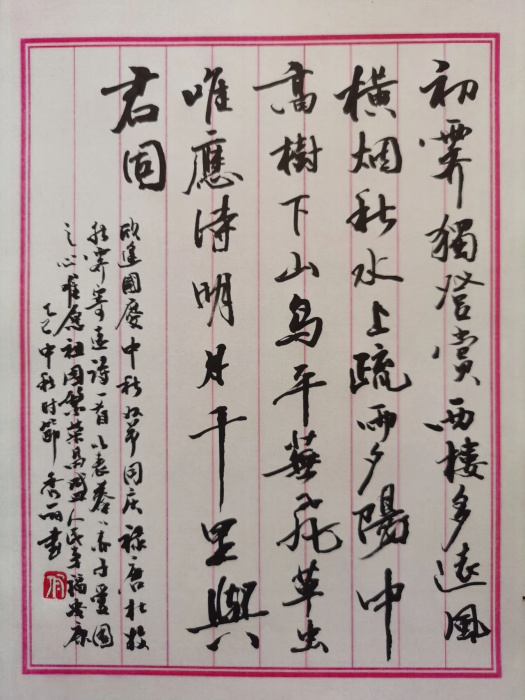 初霽獨登賞西樓多遠風
橫烟秋水上疏雨夕陽中
高樹下山鳥平蕪飛草虫
唯應待明月千里與
君同
欣逢國慶中秋双节同庆録唐杜牧
秋霽寄遠詩一首以表拳々赤子愛國
之心唯愿祖國繁荣昌盛人民幸福安康
乙巳中秋时節秀丽書